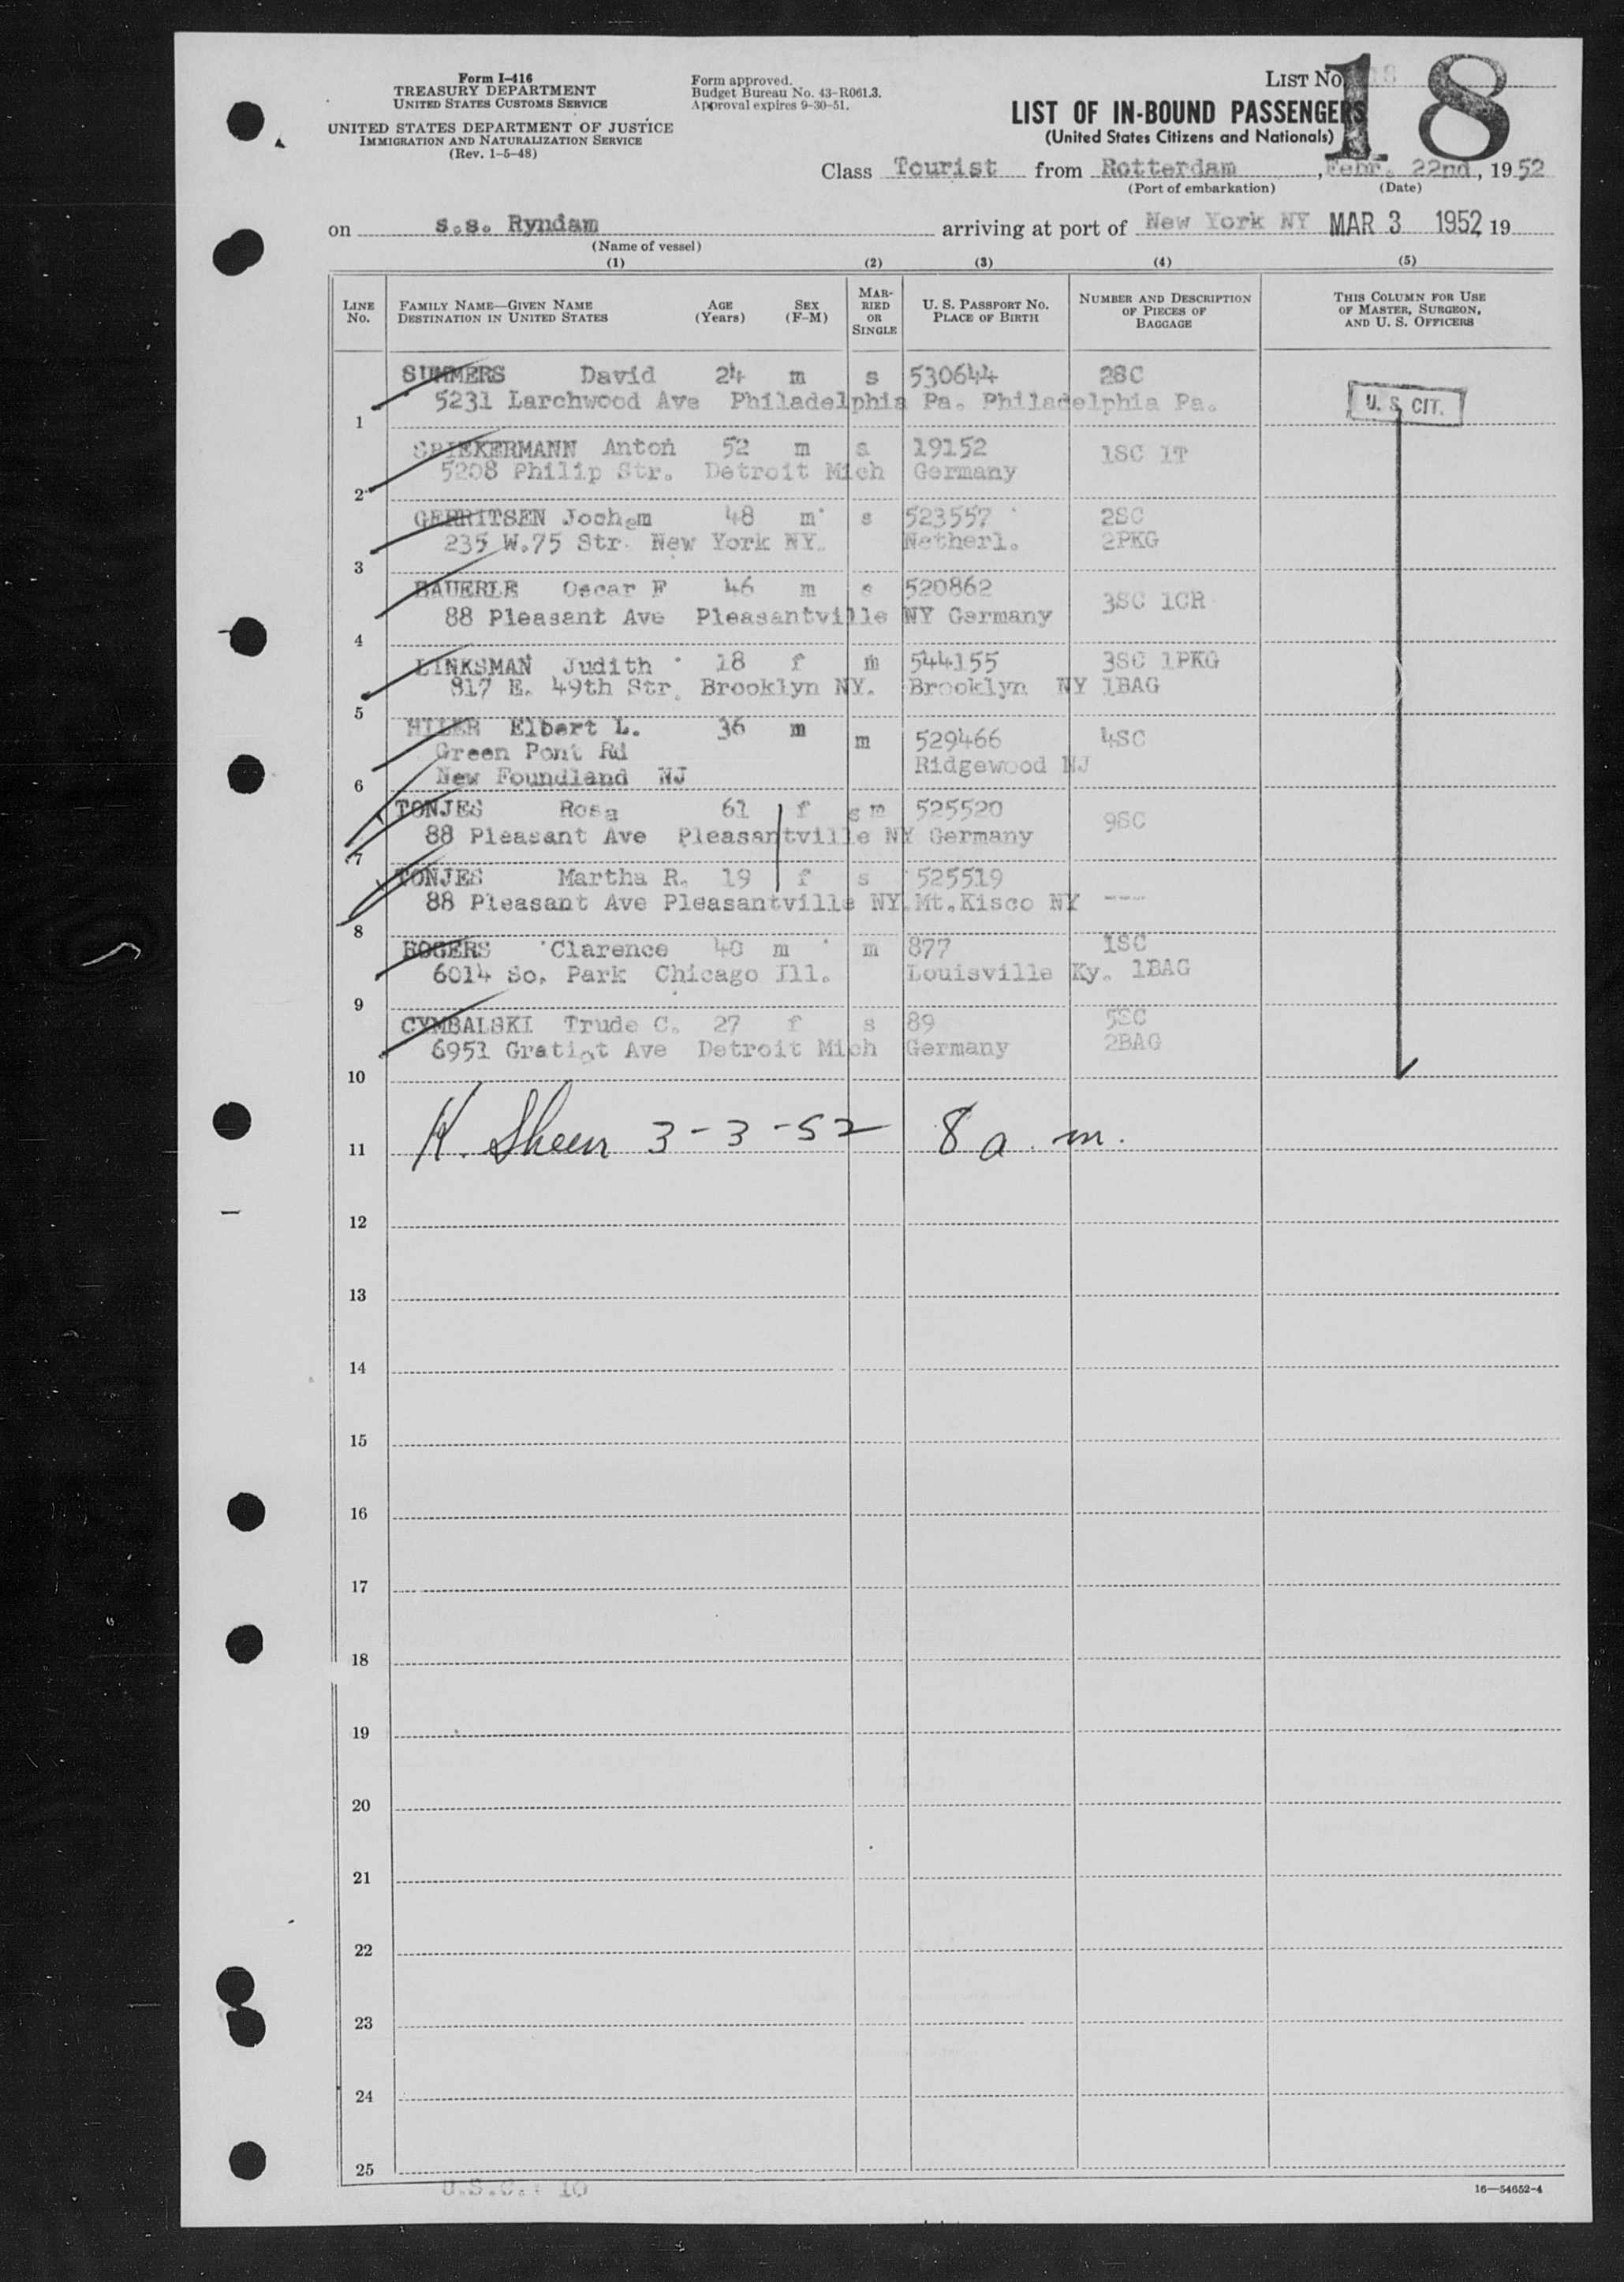 Form I-416
TREASURY DEPARTMENT
UNITED STATES CUSTOMS SERVICE
UNITED STATES DEPARTMENT OF JUSTICE
IMMIGRATION AND NATURALIZATION SERVICE
(Rev. 1-5-48)
Form approved.
Budget Bureau No. 43-R061.3.
Approval expires 9-30-51.
LIST No. 18
18
LIST OF IN-BOUND PASSENGERS
(United States Citizens and Nationals)
Class Tourist from Rotterdam, Febr. 22nd, 1952
(Port of embarkation) (Date)
on s.s. Ryndam arriving at port of New York NY MAR 3 1952, 19
(Name of vessel)
(1) (2) (3) (4) (5)
LINE No. FAMILY NAME—GIVEN NAME DESTINATION IN UNITED STATES AGE (Years) SEX (F-M) MARRIED OR SINGLE U. S. PASSPORT No. PLACE OF BIRTH NUMBER AND DESCRIPTION OF PIECES OF BAGGAGE THIS COLUMN FOR USE OF MASTER, SURGEON, AND U. S. OFFICERS
SUMMERS David 24 m s 530644 2SC
5231 Larchwood Ave Philadelphia Pa. Philadelphia Pa. U. S. CIT.
1
SPIEKERMANN Anton 52 m s 19152 1SC 1T
5208 Philip Str. Detroit Mich Germany
2
GERRITSEN Jochem 48 m s 523557 2SC
235 W.75 Str. New York NY. Netherl. 2PKG
3
BAUERLE Oscar F 46 m s 520862
88 Pleasant Ave Pleasantville NY Germany 3SC 1CR
4
LINKSMAN Judith 18 f m 544155 3SC 1PKG
817 E. 49th Str. Brooklyn NY. Brooklyn NY 1BAG
5
HILER Elbert L. 36 m m 529466 4SC
Green Pont Rd Ridgewood NJ
New Foundland NJ
6
TONJES Rosa 61 f s m 525520 9SC
88 Pleasant Ave Pleasantville NY Germany
7
TONJES Martha R. 19 f s 525519
88 Pleasant Ave Pleasantville NY. Mt.Kisco NY ---
8
ROGERS Clarence 40 m m 877 1SC
6014 So. Park Chicago Jll. Louisville Ky. 1BAG
9
CYMBALSKI Trude C. 27 f s 89 5SC
6951 Gratiot Ave Detroit Mich Germany 2BAG
10
K. Sheen 3-3-52 8 a.m.
11
12
13
14
15
16
17
18
19
20
21
22
23
24
25
U.S.C.: 10
16—54652-4